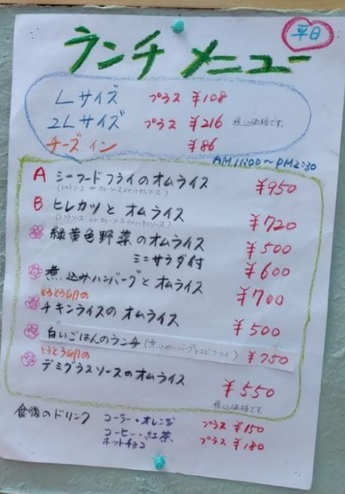 平日
ランチ メニュー
Lサイズ プラス ¥108
2Lサイズ プラス ¥216 税込価格です。
チーズイン ¥86
AM11:00～PM2:30
A シーフードフライのオムライス ¥950
B ヒレカツと オムライス ¥720
緑黄色野菜のオムライス ¥500
ミニサラダ付 ¥600
煮込みハンバーグとオムライス ¥700
とうとう卵の
チキンライスのオムライス ¥500
白いごはんのランチ ¥750
とうとう卵の
デミグラスソースのオムライス ¥550
税込価格です。
食後のドリンク コーラ・オレンジ プラス ¥150
コーヒー・紅茶 プラス ¥180
ホットチョコ